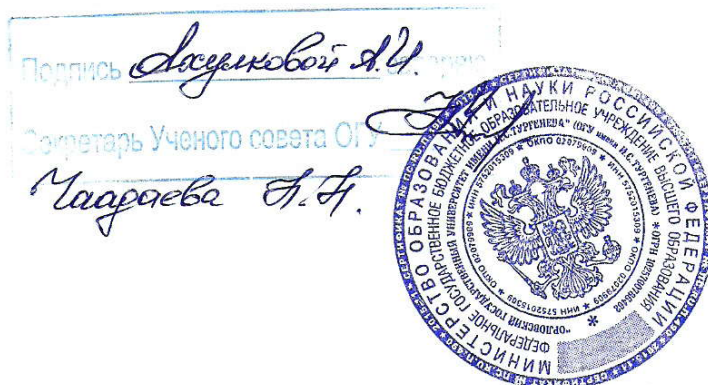 Подпись Ахулковой А.И. заверяю
Секретарь Ученого совета ОГУ
Чаадаева Н.Н.
МИНИСТЕРСТВО ОБРАЗОВАНИЯ И НАУКИ РОССИЙСКОЙ ФЕДЕРАЦИИ
ФЕДЕРАЛЬНОЕ ГОСУДАРСТВЕННОЕ БЮДЖЕТНОЕ ОБРАЗОВАТЕЛЬНОЕ УЧРЕЖДЕНИЕ ВЫСШЕГО ОБРАЗОВАНИЯ
"ОРЛОВСКИЙ ГОСУДАРСТВЕННЫЙ УНИВЕРСИТЕТ ИМЕНИ И.С.ТУРГЕНЕВА" (ОГУ имени И.С.ТУРГЕНЕВА) * ОГРН
* ОКПО 02079909 * ИНН 5752015309 * ОКПО 02079909 * ИНН 5752015309